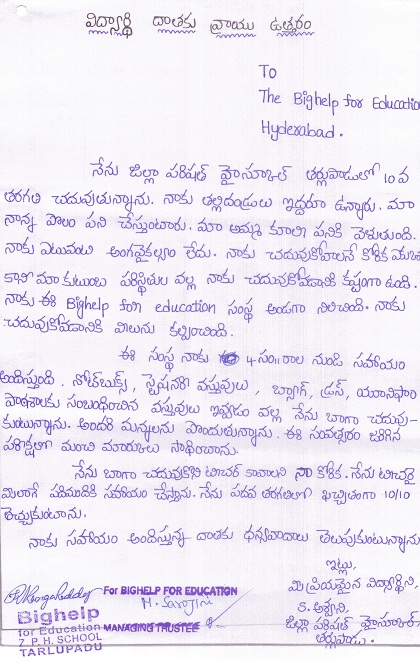 విద్యార్థి దాతకు వ్రాయు ఉత్తరం
To
The Bighelp for Education
Hyderabad.
నేను జిల్లా పరిషత్ హైస్కూల్ తర్లుపాడులో 10వ
తరగతి చదువుతున్నాను. నాకు తల్లిదండ్రులు ఇద్దరూ ఉన్నారు. మా
నాన్న పొలం పని చేస్తుంటారు. మా అమ్మ కూలీ పనికి వెళుతుంది.
నాకు ఎటువంటి అంగవైకల్యం లేదు. నాకు చదువుకోవాలనే కోరిక
కానీ మా కుటుంబ పరిస్థితుల వల్ల నాకు చదువుకోవడానికి కష్టంగా ఉంది.
నాకు ఈ Bighelp for education సంస్థ అండగా నిలిచింది. నాకు
చదువుకోవడానికి వీలును కల్పించింది.
ఈ సంస్థ నాకు 4 సం॥రాల నుండి సహాయం
అందిస్తుంది. నోట్‌బుక్స్, స్టేషనరీ వస్తువులు, బ్యాగ్, డ్రస్, యూనిఫాం
పాఠశాలకు సంబంధించిన వస్తువులు ఇవ్వడం వల్ల నేను బాగా చదువు-
కుంటున్నాను. అందరి మన్ననలు పొందుతున్నాను. ఈ సంవత్సరం జరిగిన
పరీక్షలో మంచి మార్కులు సాధించాను.
నేను బాగా చదువుకొని టీచర్ కావాలని నా కోరిక. నేను టీచరై
మీలాగే పదిమందికి సహాయం చేస్తాను. నేను పదవ తరగతిలో ఖచ్చితంగా 10/10
తెచ్చుకుంటాను.
నాకు సహాయం అందిస్తున్న దాతకు ధన్యవాదాలు తెలుపుకుంటున్నాను
ఇట్లు,
మీ ప్రియమైన విద్యార్థిని,
S. అశ్విని,
జిల్లా పరిషత్ హైస్కూల్,
తర్లుపాడు.
For BIGHELP FOR EDUCATION
M. Sarojini
MANAGING TRUSTEE
Bighelp
for Education
Z. P. H. SCHOOL
TARLUPADU